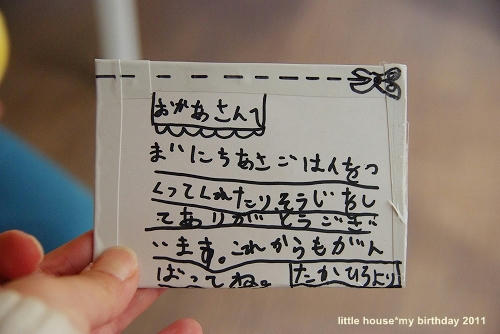 おかあさんへ
まいにちあさごはんをつ
くってくれたりそうじをし
てありがとうござい
います。これからもがん
ばってね。 たかひろより
little house*my birthday 2011